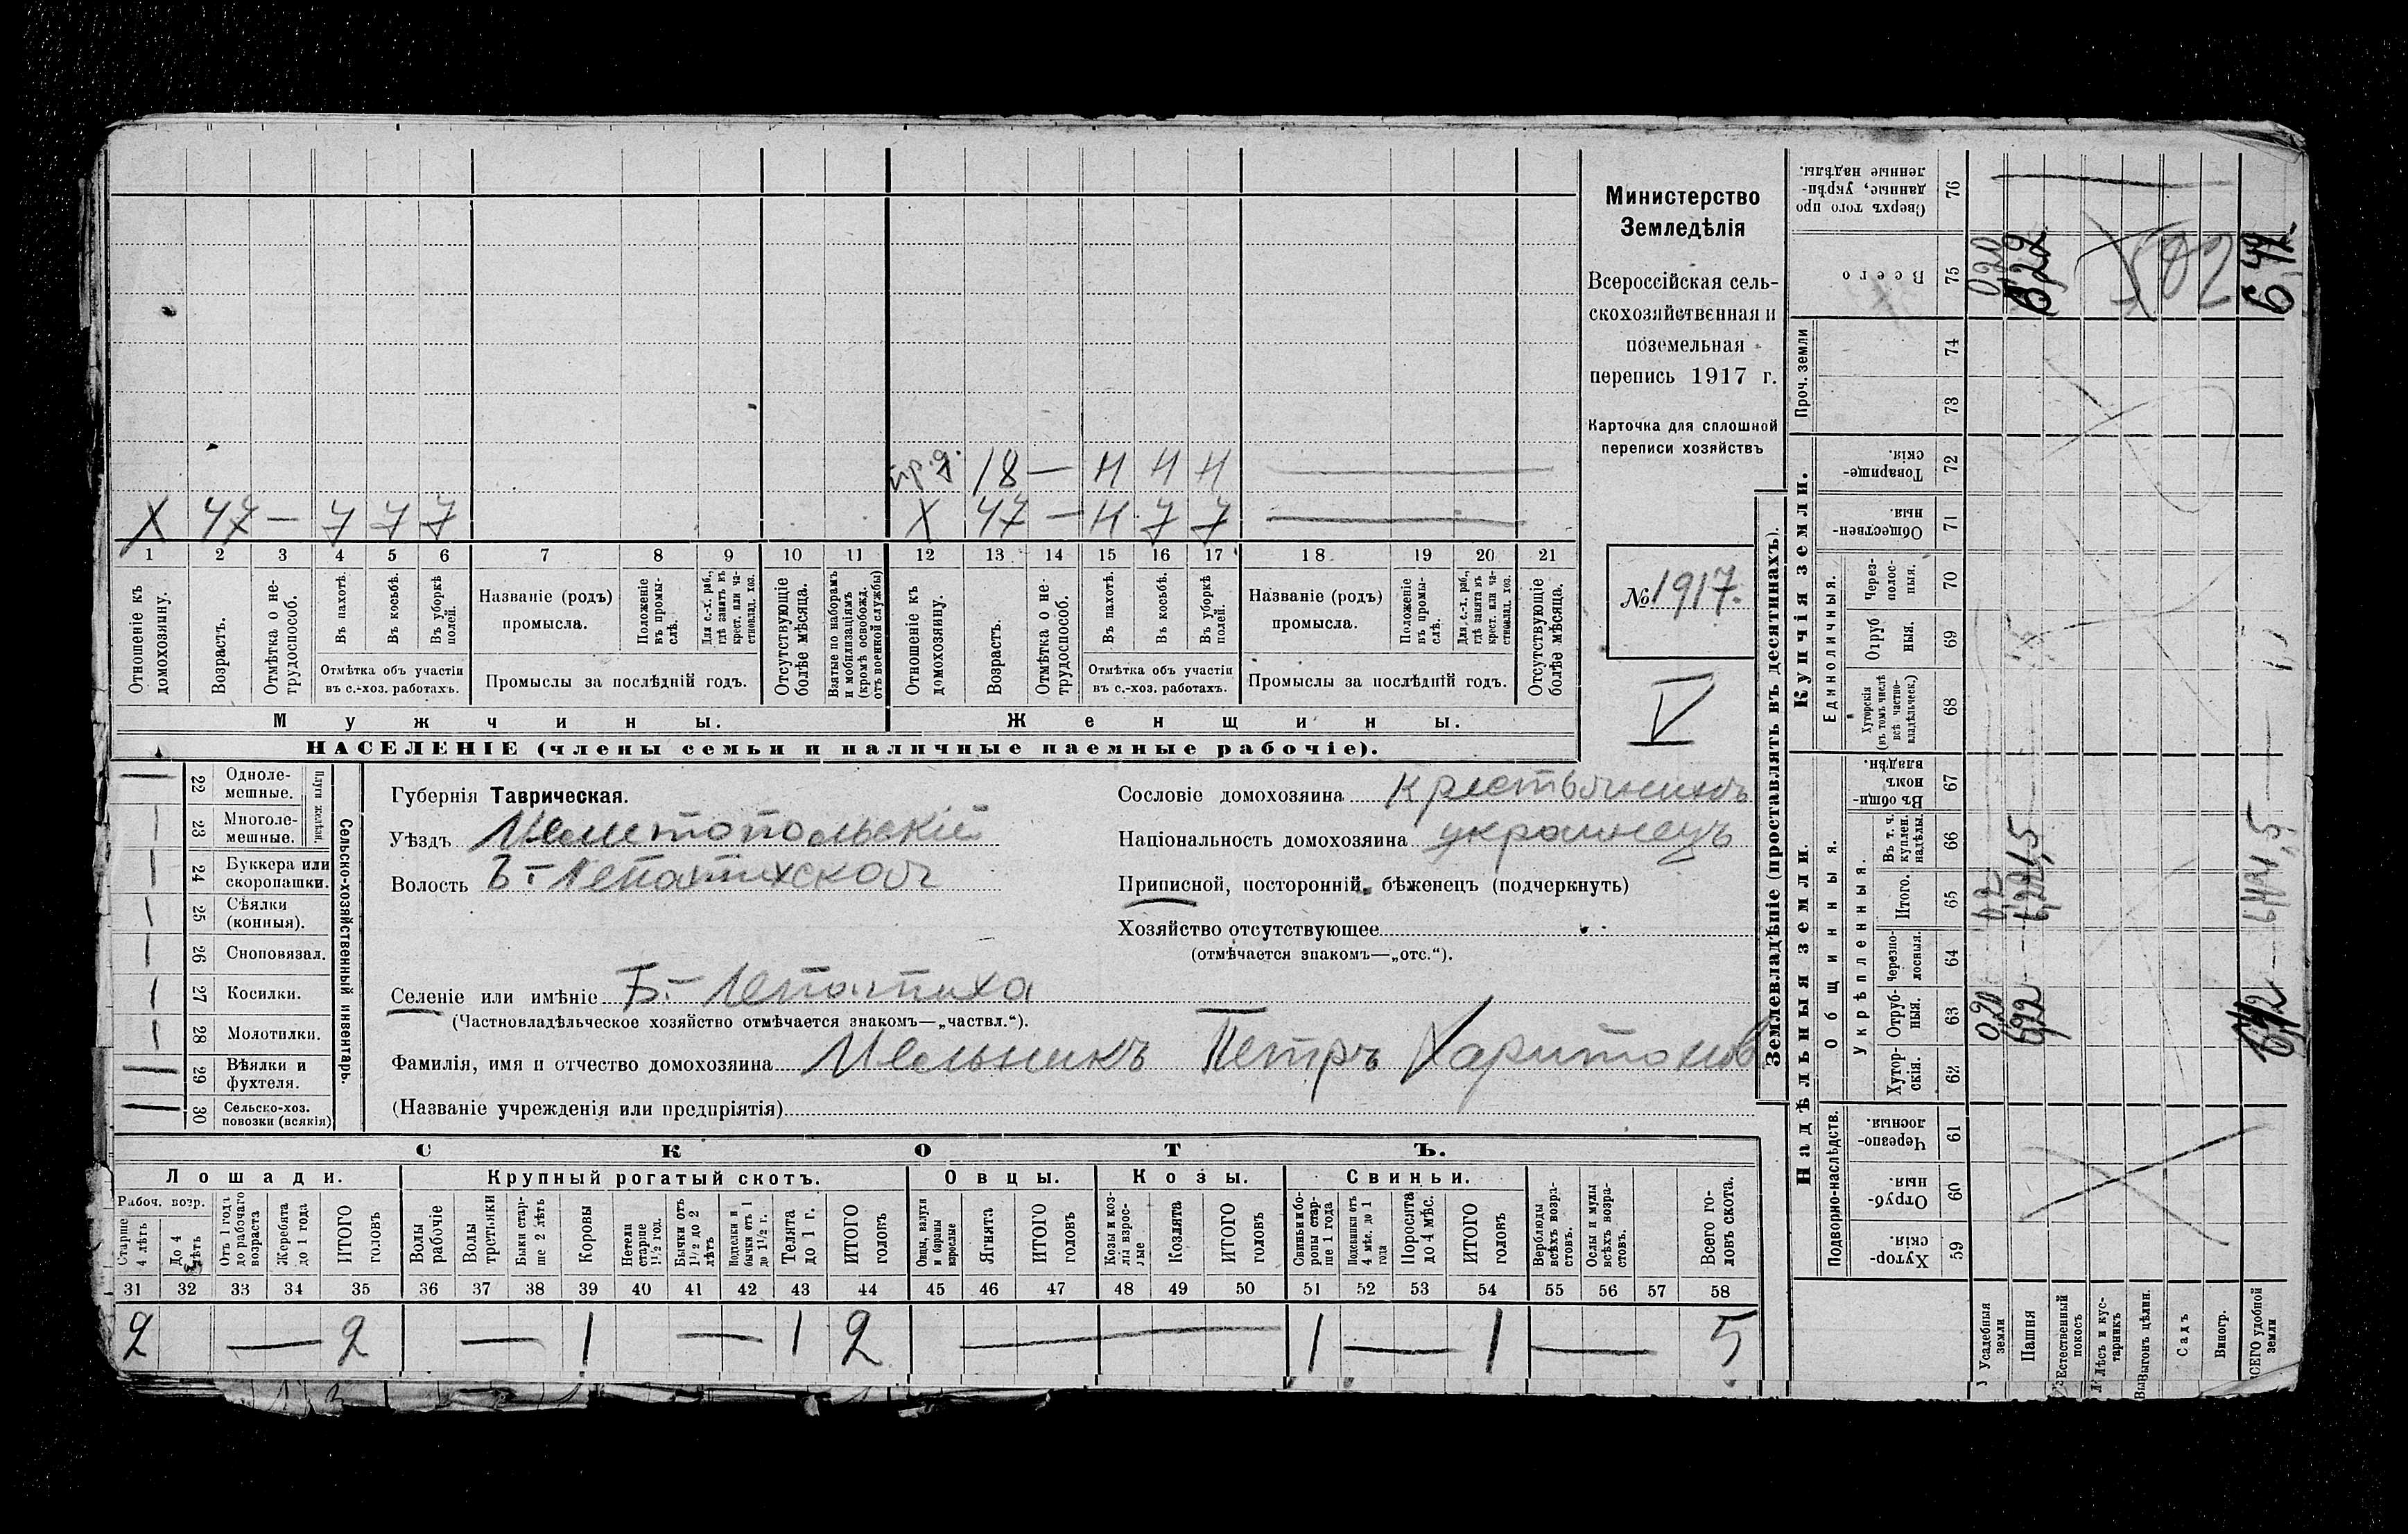 Министерство
Земледѣлія
Всероссійская сель-
скохозяйственная и
поземельная
перепись 1917 г.
Карточка для сплошной
переписи хозяйствъ
№ 1917.
V
пр. д. 18 — Н Н Н —
X 47 — 7 7 7 X 47 — Н 7 7 —
1 2 3 4 5 6 7 8 9 10 11 12 13 14 15 16 17 18 19 20 21
Отношеніе къ домохозяину.
Возрастъ.
Отмѣтка о не-трудоспособ.
Въ пахотѣ.
Въ косьбѣ.
Въ уборкѣ полей.
Отмѣтка объ участіи
въ с.-хоз. работахъ.
Названіе (родъ)
промысла.
Положеніе въ промы-слѣ.
Для с.-х. раб., гдѣ занятъ въ крест. или ча-стновлад. хоз.
Промыслы за послѣдній годъ.
Отсутствующіе болѣе мѣсяца.
Взятые по наборамъ и мобилизаціямъ (кромѣ освобожд. отъ военной службы)
Отношеніе къ домохозяину.
Возрастъ.
Отмѣтка о не-трудоспособ.
Въ пахотѣ.
Въ косьбѣ.
Въ уборкѣ полей.
Отмѣтка объ участіи
въ с.-хоз. работахъ.
Названіе (родъ)
промысла.
Положеніе въ промы-слѣ.
Для с.-х. раб., гдѣ занята въ крест. или ча-стновлад. хоз.
Промыслы за послѣдній годъ.
Отсутствующіе болѣе мѣсяца.
Мужчины. Женщины.
НАСЕЛЕНІЕ (члены семьи и наличные наемные рабочіе).
Сельско-хозяйственный инвентарь.
Плуги желѣзн.
— 22 Одноле-мешные.
| 23 Многоле-мешные.
| 24 Буккера или скоропашки.
| 25 Сѣялки (конныя).
| 26 Сноповязал.
| 27 Косилки.
| 28 Молотилки.
— 29 Вѣялки и фухтеля.
— 30 Сельско-хоз. повозки (всякія)
Губернія Таврическая.
Уѣздъ Мелитопольскій
Волость Б.-Лепатихской
Селеніе или имѣніе Б.- Лепатиха
(Частновладѣльческое хозяйство отмѣчается знакомъ—„частвл.“).
Фамилія, имя и отчество домохозяина Мельникъ Петръ Харитонов
(Названіе учрежденія или предпріятія)
Сословіе домохозяина крестьянинъ
Національность домохозяина украинецъ
Приписной, посторонній, бѣженецъ (подчеркнуть)
Хозяйство отсутствующее
(отмѣчается знакомъ—„отс.“).
СКОТЪ.
Лошади. Крупный рогатый скотъ. Овцы. Козы. Свиньи.
Рабоч. возр.
Старше 4 лѣтъ
До 4 лѣтъ
Отъ 1 года до рабочаго возраста
Жеребята до 1 года
ИТОГО головъ
Волы рабочіе
Волы третьяки
Быки стар-ше 2 лѣтъ
Коровы
Нетели старше 1½ год.
Бычки отъ 1½ до 2 лѣтъ
Подтелки и бычки отъ 1 до 1½ г.
Телята до 1 г.
ИТОГО головъ
Овцы, валухи и бараны взрослые
Ягнята
ИТОГО головъ
Козы и коз-лы взрос-лые
Козлята
ИТОГО головъ
Свиньи и бо-ровы стар-ше 1 года
Подсвинки отъ 4 мѣс. до 1 года
Поросята до 4 мѣс.
ИТОГО головъ
Верблюды всѣхъ возра-стовъ.
Ослы и мулы всѣхъ возра-стовъ.
Всего го-ловъ скота.
31 32 33 34 35 36 37 38 39 40 41 42 43 44 45 46 47 48 49 50 51 52 53 54 55 56 57 58
2 — 2 — 1 — 1 2 — 1 — 1 — 5
Землевладѣніе (проставлять въ десятинахъ).
Купчія земли.
Надѣльныя земли.
Сверхъ того про-данные, укрѣп-ленные надѣлы. 76
Всего 75 0,20 6,42
Проч. земли 74 73
Товарище-скія. 72
Обществен-ныя. 71
Единоличныя.
Через-полос-ныя. 70
Отруб-ныя. 69
Хуторскія (въ томъ числѣ всѣ частно-владѣльческ.) 68
Общинныя.
Въ общи-номъ владѣн. 67
Укрѣпленныя.
Въ т. ч. куплен. надѣлы. 66
Итого. 65
Черезпо-лосныя. 64
Отруб-ныя. 63 0,20
Хутор-скія. 62
Подворно-наслѣдств.
Черезпо-лосныя. 61
Отруб-ныя 60
Хутор-скія. 59
Усадебныя земли
Пашня
Естественный покосъ
Лѣсъ и кус-тарникъ
Выгонъ цѣлин.
Садъ
Виногр.
ВСЕГО удобной земли